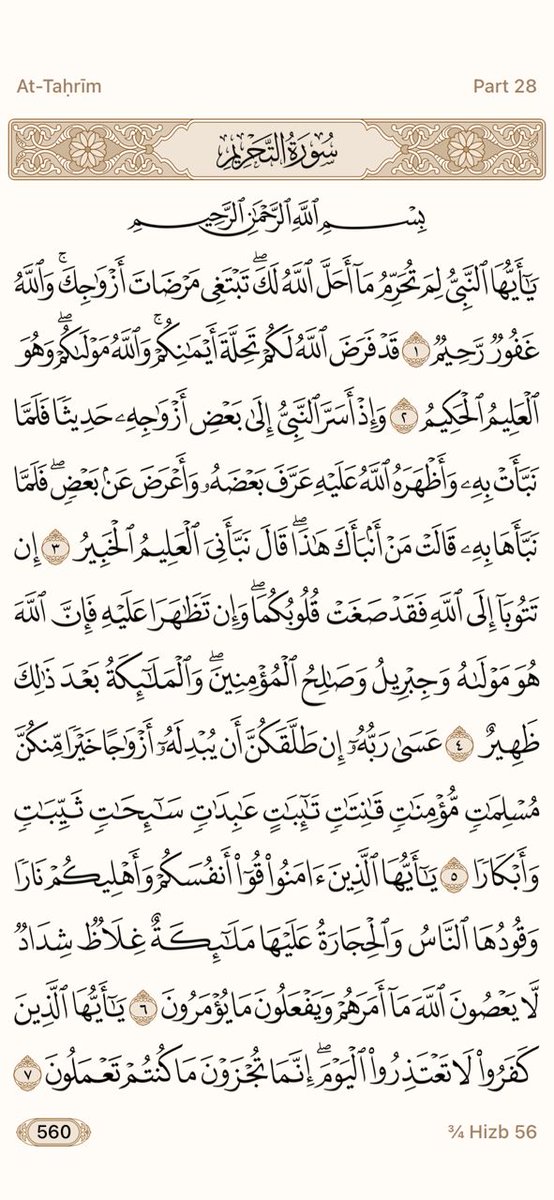 At-Taḥrīm
Part 28
سُورَةُ التَّحْرِيمِ
بِسْمِ ٱللَّهِ ٱلرَّحْمَٰنِ ٱلرَّحِيمِ
يَٰٓأَيُّهَا ٱلنَّبِىُّ لِمَ تُحَرِّمُ مَآ أَحَلَّ ٱللَّهُ لَكَۖ تَبْتَغِى مَرْضَاتَ أَزْوَٰجِكَۚ وَٱللَّهُ
غَفُورٌ رَّحِيمٌ ١ قَدْ فَرَضَ ٱللَّهُ لَكُمْ تَحِلَّةَ أَيْمَٰنِكُمْۚ وَٱللَّهُ مَوْلَىٰكُمْۖ وَهُوَ
ٱلْعَلِيمُ ٱلْحَكِيمُ ٢ وَإِذْ أَسَرَّ ٱلنَّبِىُّ إِلَىٰ بَعْضِ أَزْوَٰجِهِۦ حَدِيثًا فَلَمَّا
نَبَّأَتْ بِهِۦ وَأَظْهَرَهُ ٱللَّهُ عَلَيْهِ عَرَّفَ بَعْضَهُۥ وَأَعْرَضَ عَنۢ بَعْضٍۖ فَلَمَّا
نَبَّأَهَا بِهِۦ قَالَتْ مَنْ أَنۢبَأَكَ هَٰذَاۖ قَالَ نَبَّأَنِىَ ٱلْعَلِيمُ ٱلْخَبِيرُ ٣ إِن
تَتُوبَآ إِلَى ٱللَّهِ فَقَدْ صَغَتْ قُلُوبُكُمَاۖ وَإِن تَظَٰهَرَا عَلَيْهِ فَإِنَّ ٱللَّهَ
هُوَ مَوْلَىٰهُ وَجِبْرِيلُ وَصَٰلِحُ ٱلْمُؤْمِنِينَۖ وَٱلْمَلَٰٓئِكَةُ بَعْدَ ذَٰلِكَ
ظَهِيرٌ ٤ عَسَىٰ رَبُّهُۥٓ إِن طَلَّقَكُنَّ أَن يُبْدِلَهُۥٓ أَزْوَٰجًا خَيْرًا مِّنكُنَّ
مُسْلِمَٰتٍ مُّؤْمِنَٰتٍ قَٰنِتَٰتٍ تَٰٓئِبَٰتٍ عَٰبِدَٰتٍ سَٰٓئِحَٰتٍ ثَيِّبَٰتٍ
وَأَبْكَارًا ٥ يَٰٓأَيُّهَا ٱلَّذِينَ ءَامَنُوا۟ قُوٓا۟ أَنفُسَكُمْ وَأَهْلِيكُمْ نَارًا
وَقُودُهَا ٱلنَّاسُ وَٱلْحِجَارَةُ عَلَيْهَا مَلَٰٓئِكَةٌ غِلَاظٌ شِدَادٌ
لَّا يَعْصُونَ ٱللَّهَ مَآ أَمَرَهُمْ وَيَفْعَلُونَ مَا يُؤْمَرُونَ ٦ يَٰٓأَيُّهَا ٱلَّذِينَ
كَفَرُوا۟ لَا تَعْتَذِرُوا۟ ٱلْيَوْمَۖ إِنَّمَا تُجْزَوْنَ مَا كُنتُمْ تَعْمَلُونَ ٧
560
¾ Hizb 56